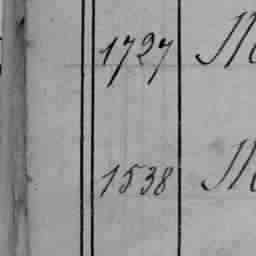 1727
1538